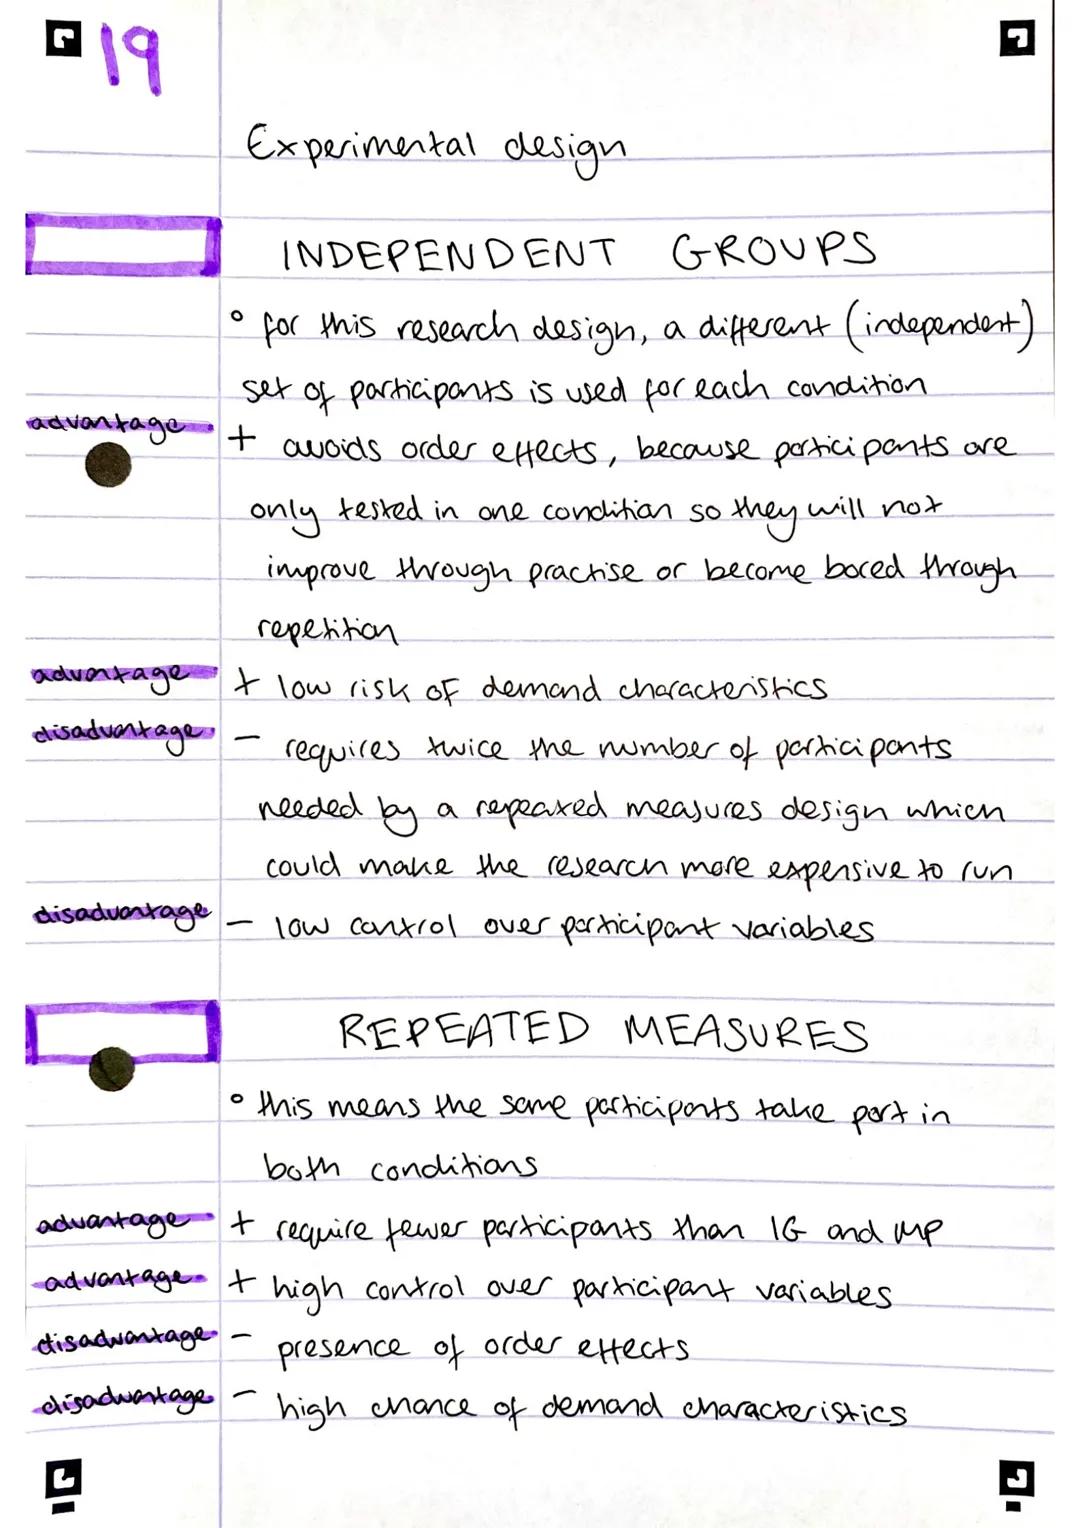 19
Experimental design
INDEPENDENT GROUPS
° for this research design, a different (independent)
set of participants is used for each condition
advantage + avoids order effects, because participants are
only tested in one condition so they will not
improve through practise or become bored through
repetition
advantage + low risk of demand characteristics
disadvantage - requires twice the number of participants
needed by a repeated measures design which
could make the research more expensive to run
disadvantage - low control over participant variables
REPEATED MEASURES
° this means the same participants take part in
both conditions
advantage + require fewer participants than IG and MP
advantage + high control over participant variables
disadvantage - presence of order effects
disadvantage - high chance of demand characteristics